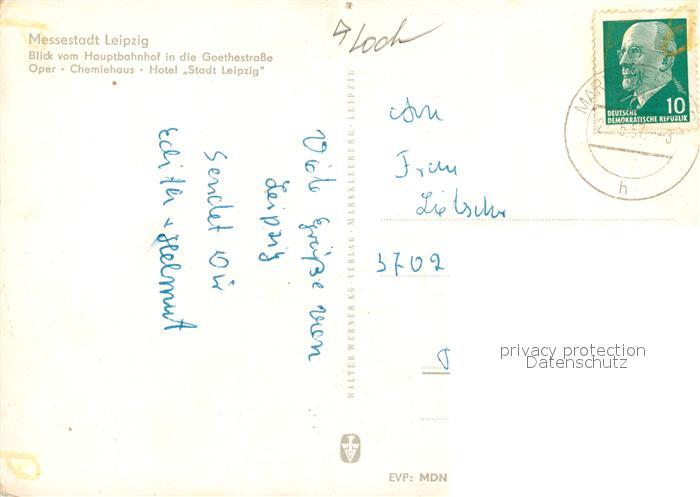 Messestadt Leipzig
Blick vom Hauptbahnhof in die Goethestraße
Oper · Chemiehaus · Hotel „Stadt Leipzig"
Loch
10
DEUTSCHE
DEMOKRATISCHE REPUBLIK
MAR
h
Viele Grüße von
Leipzig
sendet Dir
Edith + Helmut
WALTER WERNER KG · VERLAG · MARKKLEEBERG - LEIPZIG
An
Frau
privacy protection
Datenschutz
EVP: MDN